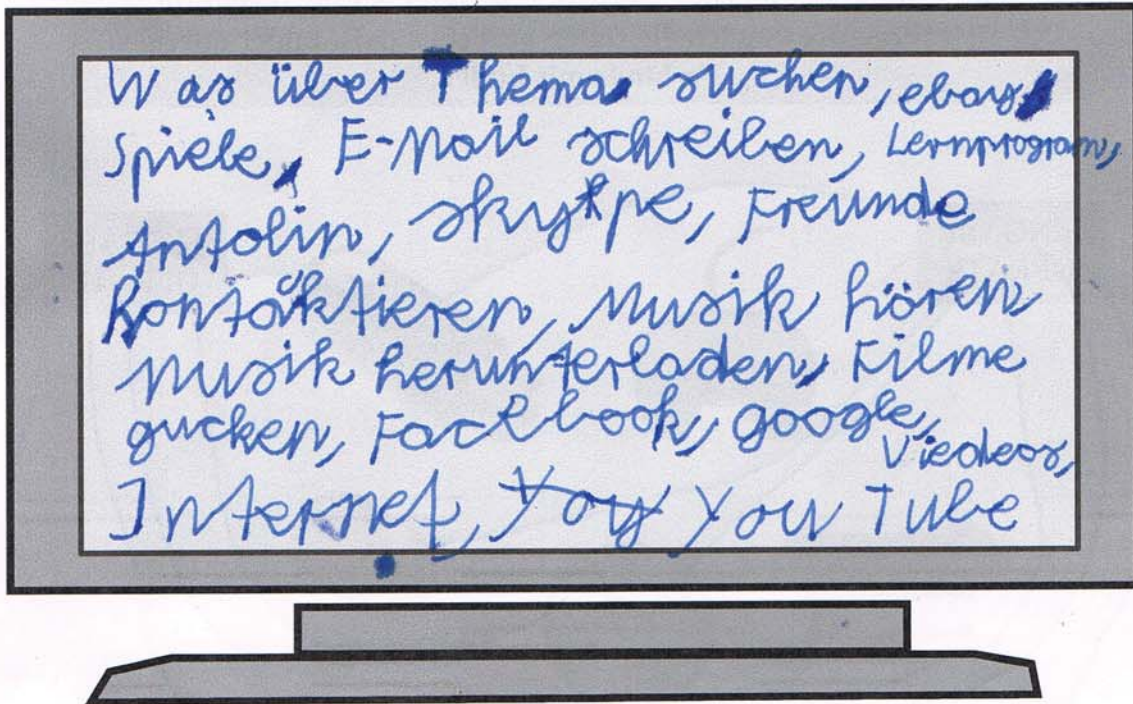 Was über Thema suchen, ebay,
Spiele, E-Mail schreiben, Lernprogram,
Antolin, skype, Freunde
kontaktieren, Musik hören
Musik herunterladen, Filme
gucken, Facebook, google,
Viedeos,
Internet, You You Tube